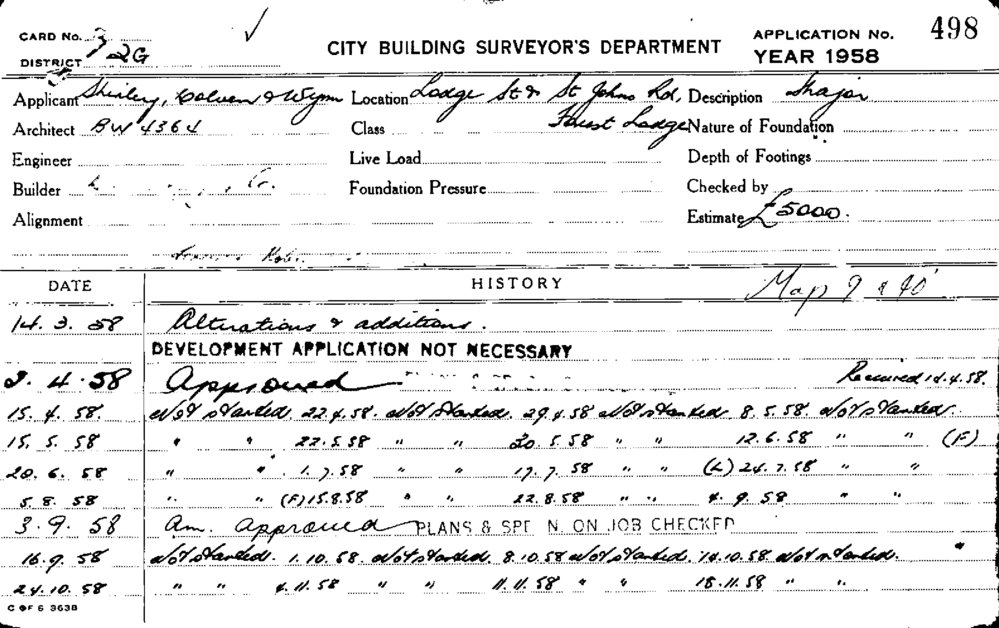 CARD No. 3
DISTRICT 2G
CITY BUILDING SURVEYOR'S DEPARTMENT
APPLICATION No. 498
YEAR 1958
Applicant Shirley, Colven & Wynn Location Lodge St & St Johns Rd, Description
Architect BW 4364 Class Forest Lodge Nature of Foundation
Engineer Live Load Depth of Footings
Builder Foundation Pressure Checked by
Alignment Estimate £5000.
DATE HISTORY Map 9 & 40'
14. 3. 58 Alterations & additions.
DEVELOPMENT APPLICATION NOT NECESSARY
4. 58 Approved Received 14.4.58.
15. 4. 58. Not started. 22.4.58. Not Started. 29.4.58 Not started 8.5.58. Not Started.
15. 5. 58 " " 22.5.58 " " 30.5.58 " " 12.6.58 " " (F)
20. 6. 58 " " 1.7.58 " " 17.7.58 " " (L) 24.7.58 " "
5. 8. 58 " " (F) 15.8.58 " " 22.8.58 " " 4.9.58 " "
3. 9. 58 Am. approved PLANS & SPE N. ON JOB CHECKED
16.9.58 Not started. 1.10.58. Not started. 8.10.58 Not started. 14.10.58. Not started. "
24.10.58 " " 4.11.58 " " 11.11.58 " " 18.11.58 " "
C OF S 3638